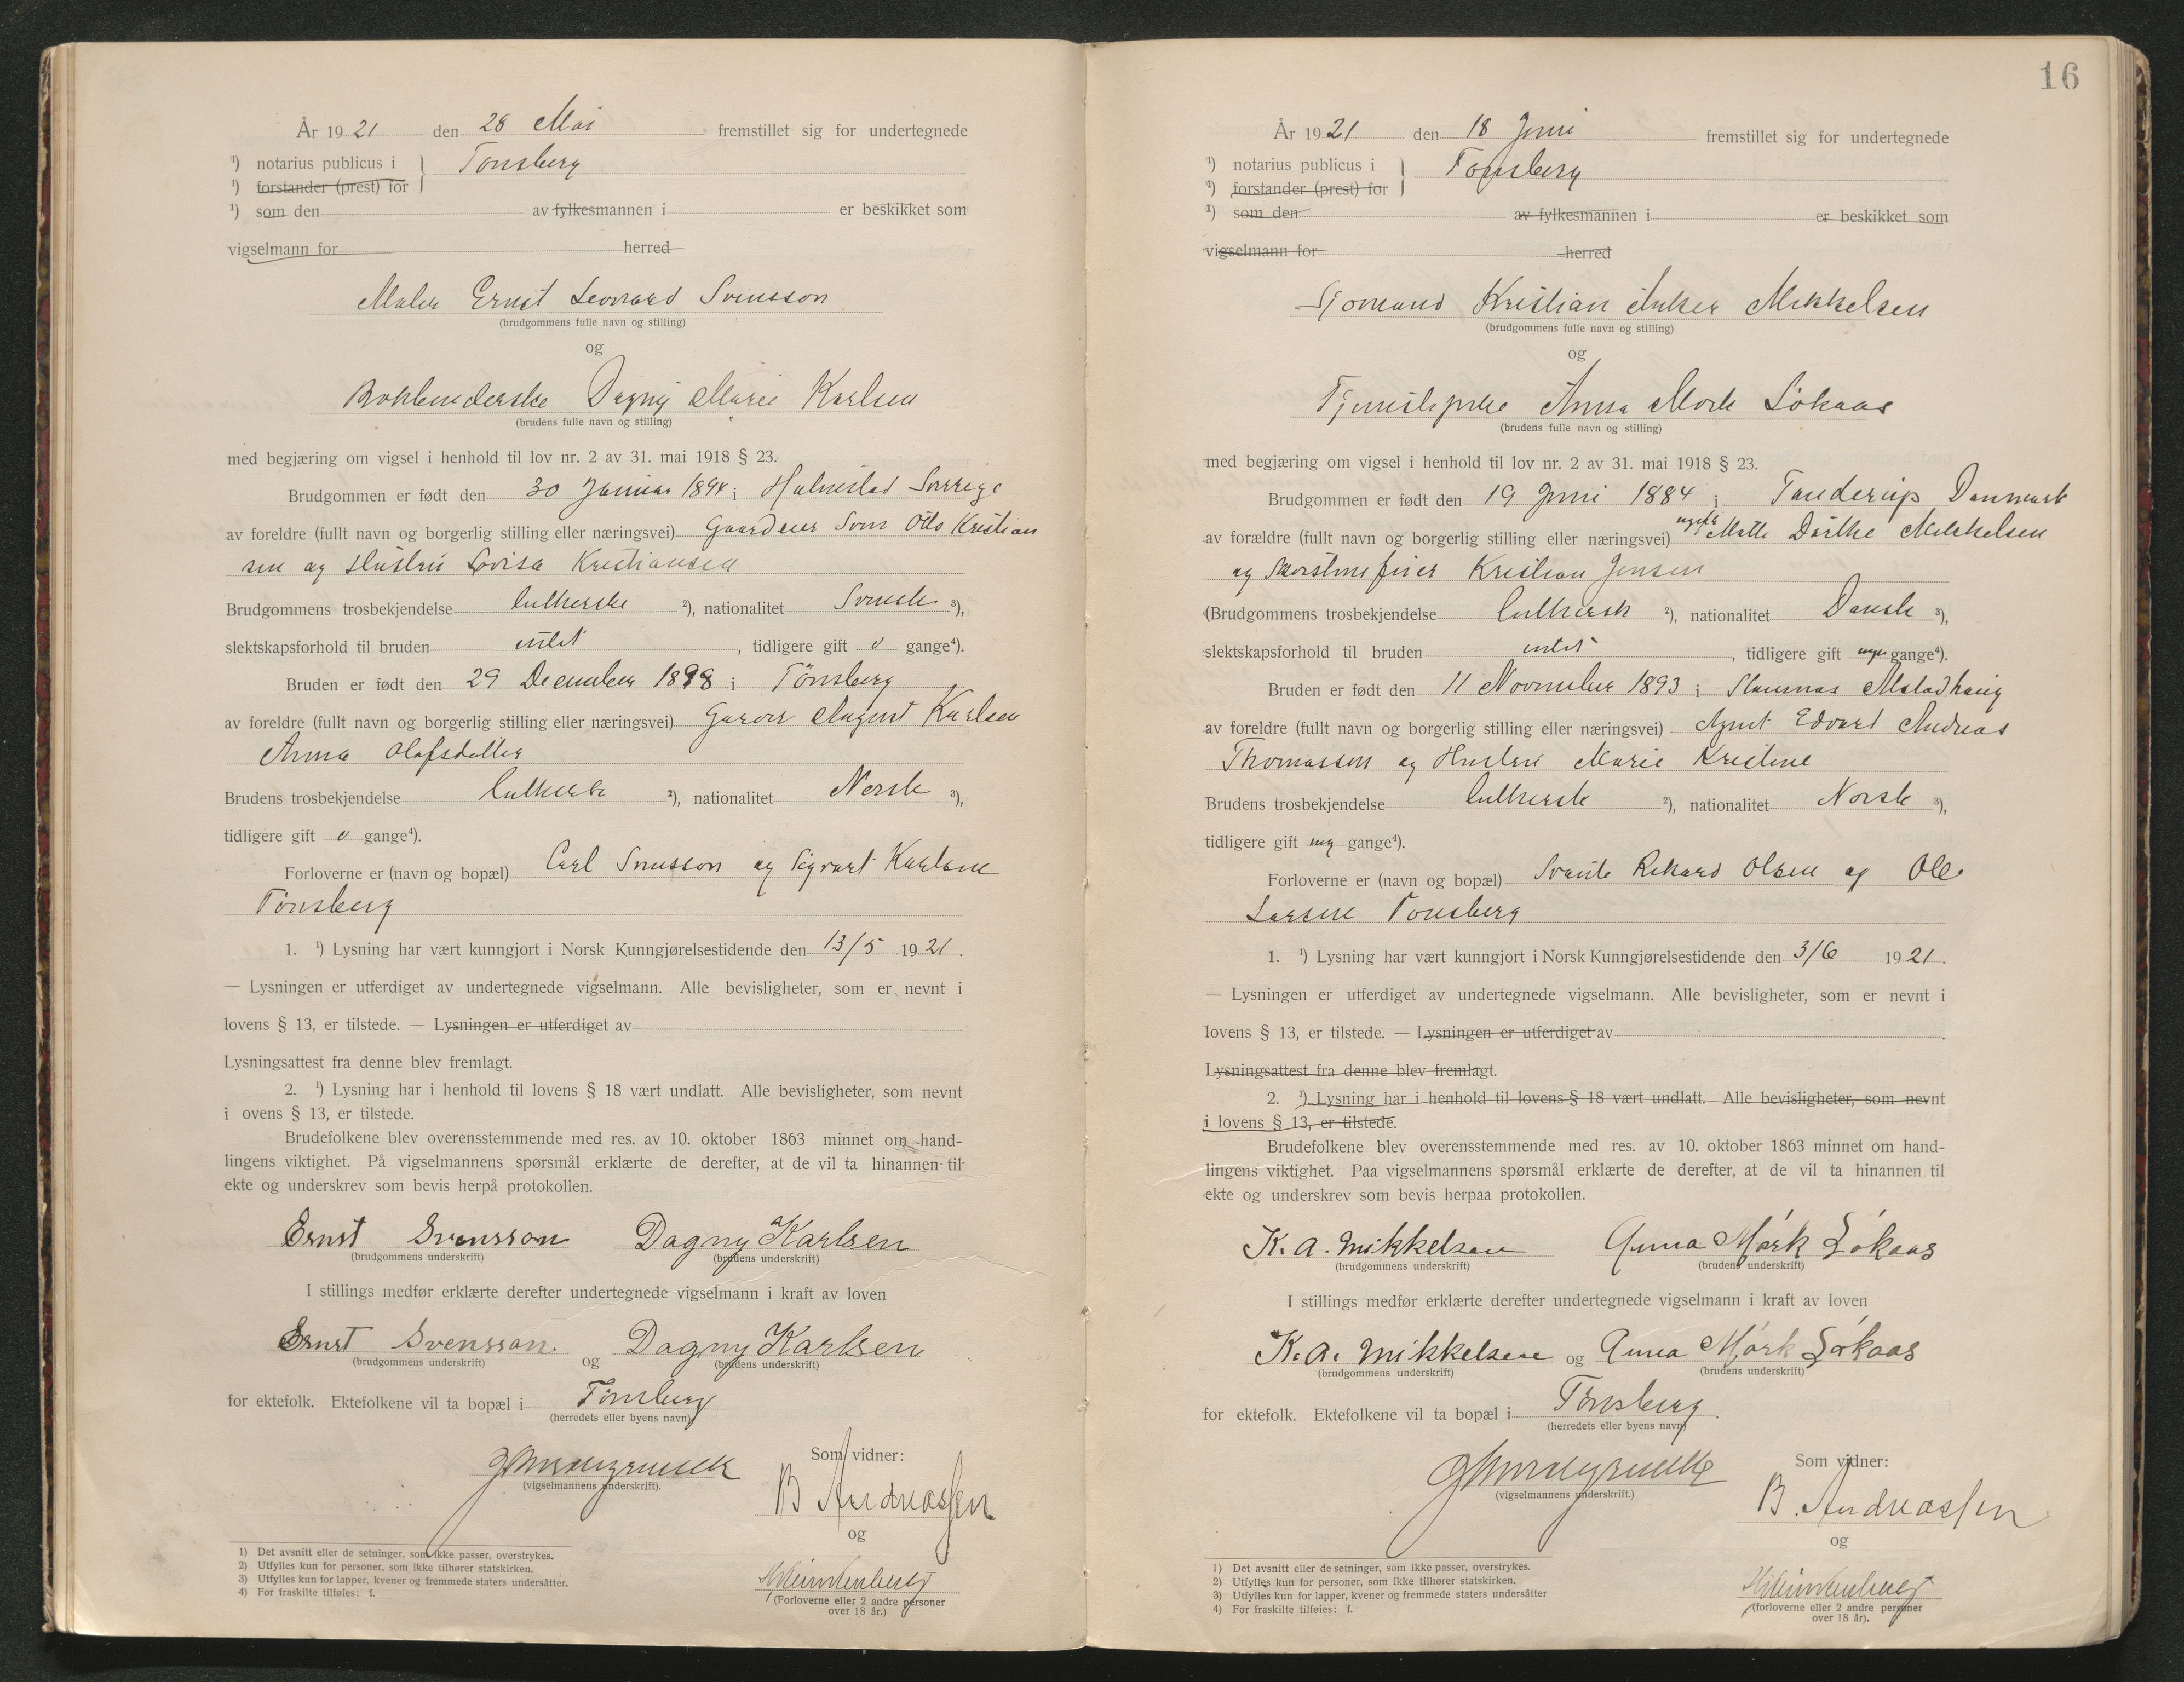 År 1921 den 28 Mai fremstillet sig for undertegnede
¹) notarius publicus i } Tønsberg
¹) forstander (prest) for
¹) som den av fylkesmannen i er beskikket som
vigselmann for herred
Maler Ernst Leonard Svensson
(brudgommens fulle navn og stilling)
og
Bokbinderske Dagny Marie Karlsen
(brudens fulle navn og stilling)
med begjæring om vigsel i henhold til lov nr. 2 av 31. mai 1918 § 23.
Brudgommen er født den 30 Januar 1894 i Halmstad Sverrige
av foreldre (fullt navn og borgerlig stilling eller næringsvei) Gaardeier Sven Otto Kristian
sen og Hustru Lovisa Kristiansen
Brudgommens trosbekjendelse lutherske ²), nationalitet Svensk ³),
slektskapsforhold til bruden intet, tidligere gift 0 gange⁴).
Bruden er født den 29 December 1898 i Tönsberg
av foreldre (fullt navn og borgerlig stilling eller næringsvei) Garver August Karlsen
Anna Olafsdatter
Brudens trosbekjendelse luthersk ²), nationalitet Norsk ³),
tidligere gift 0 gange⁴).
Forloverne er (navn og bopæl) Carl Svensson og Sigvart Karlsen
Tønsberg
1. ¹) Lysning har vært kunngjort i Norsk Kunngjørelsestidende den 13/5 1921.
— Lysningen er utferdiget av undertegnede vigselmann. Alle bevisligheter, som er nevnt i
lovens § 13, er tilstede. — Lysningen er utferdiget av
Lysningsattest fra denne blev fremlagt.
2. ¹) Lysning har i henhold til lovens § 18 vært undlatt. Alle bevisligheter, som nevnt
i ovens § 13, er tilstede.
Brudefolkene blev overensstemmende med res. av 10. oktober 1863 minnet om hand-
lingens viktighet. På vigselmannens spørsmål erklærte de derefter, at de vil ta hinannen til
ekte og underskrev som bevis herpå protokollen.
Ernst Svensson Dagny Karlsen
(brudgommens underskrift) (brudens underskrift)
I stillings medfør erklærte derefter undertegnede vigselmann i kraft av loven
Ernst Svensson og Dagny Karlsen
(brudgommens underskrift) (brudens underskrift)
for ektefolk. Ektefolkene vil ta bopæl i Tönsberg
(herredets eller byens navn)
Som vidner:
(vigselmannens underskrift).
B Andreassen
og
(Forloverne eller 2 andre personer
over 18 år.)
1) Det avsnitt eller de setninger, som ikke passer, overstrykes.
2) Utfylles kun for personer, som ikke tilhører statskirken.
3) Utfylles kun for lapper, kvener og fremmede staters undersåtter.
4) For fraskilte tilføies: f.
16
År 1921 den 18 Juni fremstillet sig for undertegnede
¹) notarius publicus i } Tönsberg
¹) forstander (prest) for
¹) som den av fylkesmannen i er beskikket som
vigselmann for herred
Sjømand Kristian Anker Mikkelsen
(brudgommens fulle navn og stilling)
og
Tjenestepike Anna Mørk Løkaas
(brudens fulle navn og stilling)
med begjæring om vigsel i henhold til lov nr. 2 av 31. mai 1918 § 23.
Brudgommen er født den 19 Juni 1884 i Tanderup Danmark
av forældre (fullt navn og borgerlig stilling eller næringsvei) ugift Mette Dorthe Mikkelsen
og Skorstensfeier Kristian Jensen
(Brudgommens trosbekjendelse luthersk ²), nationalitet Dansk ³),
slektskapsforhold til bruden intet, tidligere gift ingen gange⁴).
Bruden er født den 11 November 1893 i Alstadhaug
av foreldre (fullt navn og borgerlig stilling eller næringsvei) Agent Edvard Andreas
Thomassen og Hustru Marie Kristine
Brudens trosbekjendelse lutherske ²), nationalitet Norsk ³),
tidligere gift ing gange⁴).
Forloverne er (navn og bopæl) Svante Rikard Olsen og Ole
Larsen Tönsberg
1. ¹) Lysning har vært kunngjort i Norsk Kunngjørelsestidende den 3/6 1921.
— Lysningen er utferdiget av undertegnede vigselmann. Alle bevisligheter, som er nevnt i
lovens § 13, er tilstede. — Lysningen er utferdiget av
Lysningsattest fra denne blev fremlagt.
2. ¹) Lysning har i henhold til lovens § 18 vært undlatt. Alle bevisligheter, som nevnt
i lovens § 13, er tilstede.
Brudefolkene blev overensstemmende med res. av 10. oktober 1863 minnet om hand-
lingens viktighet. Paa vigselmannens spørsmål erklærte de derefter, at de vil ta hinannen til
ekte og underskrev som bevis herpaa protokollen.
K. A. Mikkelsen Anna Mørk Løkaas
(brudgommens underskrift) (brudens underskrift)
I stillings medfør erklærte derefter undertegnede vigselmann i kraft av loven
K. A. Mikkelsen og Anna Mørk Løkaas
(brudgommens underskrift) (brudens underskrift)
for ektefolk. Ektefolkene vil ta bopæl i Tønsberg
(herredets eller byens navn)
Som vidner:
(vigselmannens underskrift.)
B. Andreassen
og
(forloverne eller 2 andre personer
over 18 år).
1) Det avsnitt eller de setninger, som ikke passer, overstrykes.
2) Utfylles kun for personer, som ikke tilhører statskirken.
3) Utfylles kun for lapper, kvener og fremmede staters undersåtter
4) For fraskilte tilføies: f.